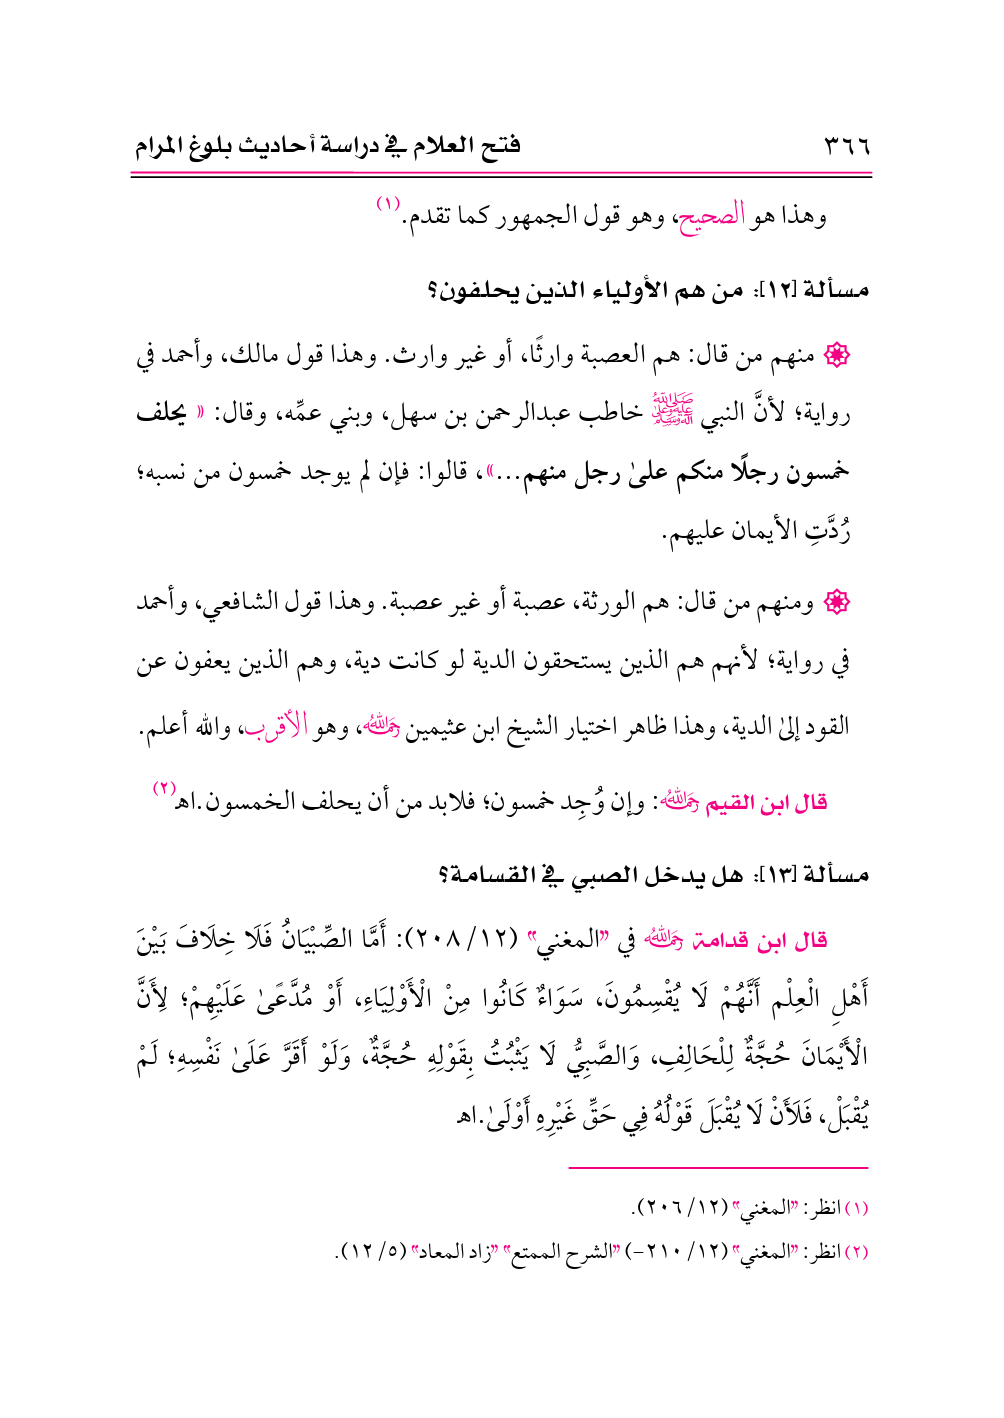 ٣٦٦ فتح العلام في دراسة أحاديث بلوغ المرام
وهذا هو الصحيح، وهو قول الجمهور كما تقدم.(١)
مسألة [١٢]: من هم الأولياء الذين يحلفون؟
منهم من قال: هم العصبة وارثًا، أو غير وارث. وهذا قول مالك، وأحمد في
رواية؛ لأنَّ النبي ﷺ خاطب عبدالرحمن بن سهل، وبني عمِّه، وقال: « يحلف
خمسون رجلًا منكم علىٰ رجل منهم...»، قالوا: فإن لم يوجد خمسون من نسبه؛
رُدَّتِ الأيمان عليهم.
ومنهم من قال: هم الورثة، عصبة أو غير عصبة. وهذا قول الشافعي، وأحمد
في رواية؛ لأنهم هم الذين يستحقون الدية لو كانت دية، وهم الذين يعفون عن
القود إلىٰ الدية، وهذا ظاهر اختيار الشيخ ابن عثيمين رحمه الله، وهو الأقرب، والله أعلم.
قال ابن القيم رحمه الله: وإن وُجِد خمسون؛ فلابد من أن يحلف الخمسون.اهـ(٢)
مسألة [١٣]: هل يدخل الصبي في القسامة؟
قال ابن قدامة رحمه الله في "المغني" (١٢/ ٢٠٨): أَمَّا الصِّبْيَانُ فَلَا خِلَافَ بَيْنَ
أَهْلِ الْعِلْم أَنَّهُمْ لَا يُقْسِمُونَ، سَوَاءٌ كَانُوا مِنْ الْأَوْلِيَاءِ، أَوْ مُدَّعًى عَلَيْهِمْ؛ لِأَنَّ
الْأَيْمَانَ حُجَّةٌ لِلْحَالِفِ، وَالصَّبِيُّ لَا يَثْبُتُ بِقَوْلِهِ حُجَّةٌ، وَلَوْ أَقَرَّ عَلَىٰ نَفْسِهِ؛ لَمْ
يُقْبَلْ، فَلَأَنْ لَا يُقْبَلَ قَوْلُهُ فِي حَقِّ غَيْرِهِ أَوْلَىٰ.اهـ
(١) انظر: "المغني" (١٢/ ٢٠٦).
(٢) انظر: "المغني" (١٢/ ٢١٠-) "الشرح الممتع" "زاد المعاد" (٥/ ١٢).